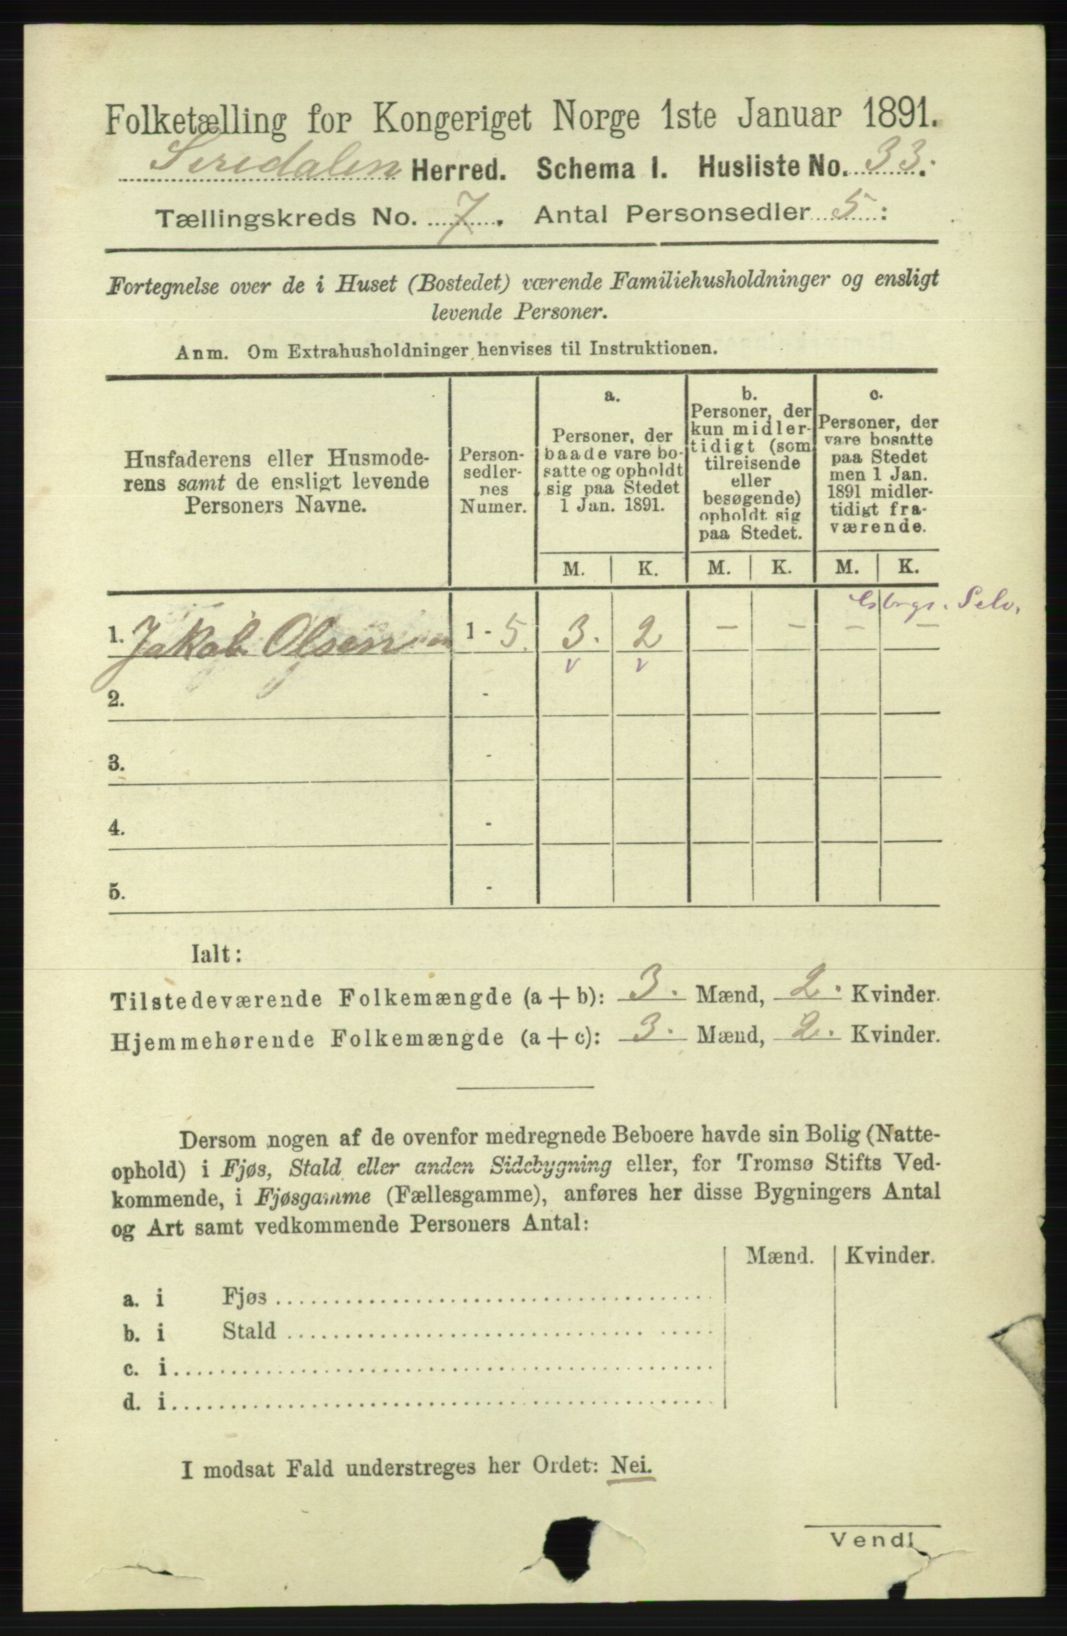 Folketælling for Kongeriget Norge 1ste Januar 1891.
Siredalen Herred. Schema I. Husliste No. 33.
Tællingskreds No. 7. Antal Personsedler 5:
Fortegnelse over de i Huset (Bostedet) værende Familiehusholdninger og ensligt
levende Personer.
Anm. Om Extrahusholdninger henvises til Instruktionen.
Husfaderens eller Husmode-
rens samt de ensligt levende
Personers Navne.
Person-
sedler-
nes
Numer.
a.
Personer, der
baade vare bo-
satte og opholdt
sig paa Stedet
1 Jan. 1891.
b.
Personer, der
kun midler-
tidigt (som
tilreisende
eller
besøgende)
opholdt sig
paa Stedet.
c.
Personer, der
vare bosatte
paa Stedet
men 1 Jan.
1891 midler-
tidigt fra-
værende.
M. K. M. K. M. K.
Selv.
1. Jakob Olsen 1 - 5. 3. 2 — — — —
v v
2. -
3. -
4. -
5. -
Ialt:
Tilstedeværende Folkemængde (a + b): 3. Mænd, 2. Kvinder.
Hjemmehørende Folkemængde (a + c): 3. Mænd, 2. Kvinder.
Dersom nogen af de ovenfor medregnede Beboere havde sin Bolig (Natte-
ophold) i Fjøs, Stald eller anden Sidebygning eller, for Tromsø Stifts Ved-
kommende, i Fjøsgamme (Fællesgamme), anføres her disse Bygningers Antal
og Art samt vedkommende Personers Antal:
Mænd. Kvinder.
a. i Fjøs
b. i Stald
c. i
d. i
I modsat Fald understreges her Ordet: Nei.
Vend!